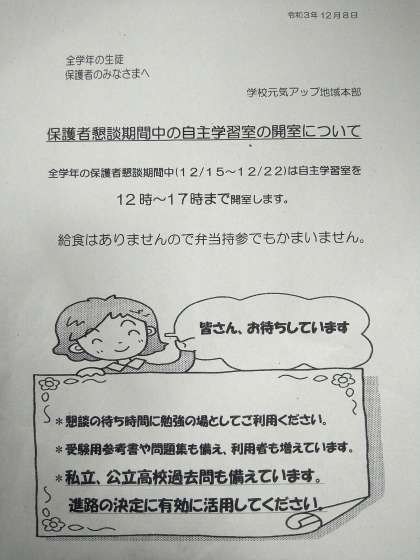 令和3年12月8日
全学年の生徒
保護者のみなさまへ
学校元気アップ地域本部
保護者懇談期間中の自主学習室の開室について
全学年の保護者懇談期間中(12/15~12/22)は自主学習室を
12時~17時まで開室します。
給食はありませんので弁当持参でもかまいません。
皆さん、お待ちしています
*懇談の待ち時間に勉強の場としてご利用ください。
*受験用参考書や問題集も備え、利用者も増えています。
*私立、公立高校過去問も備えています。
進路の決定に有効に活用してください。